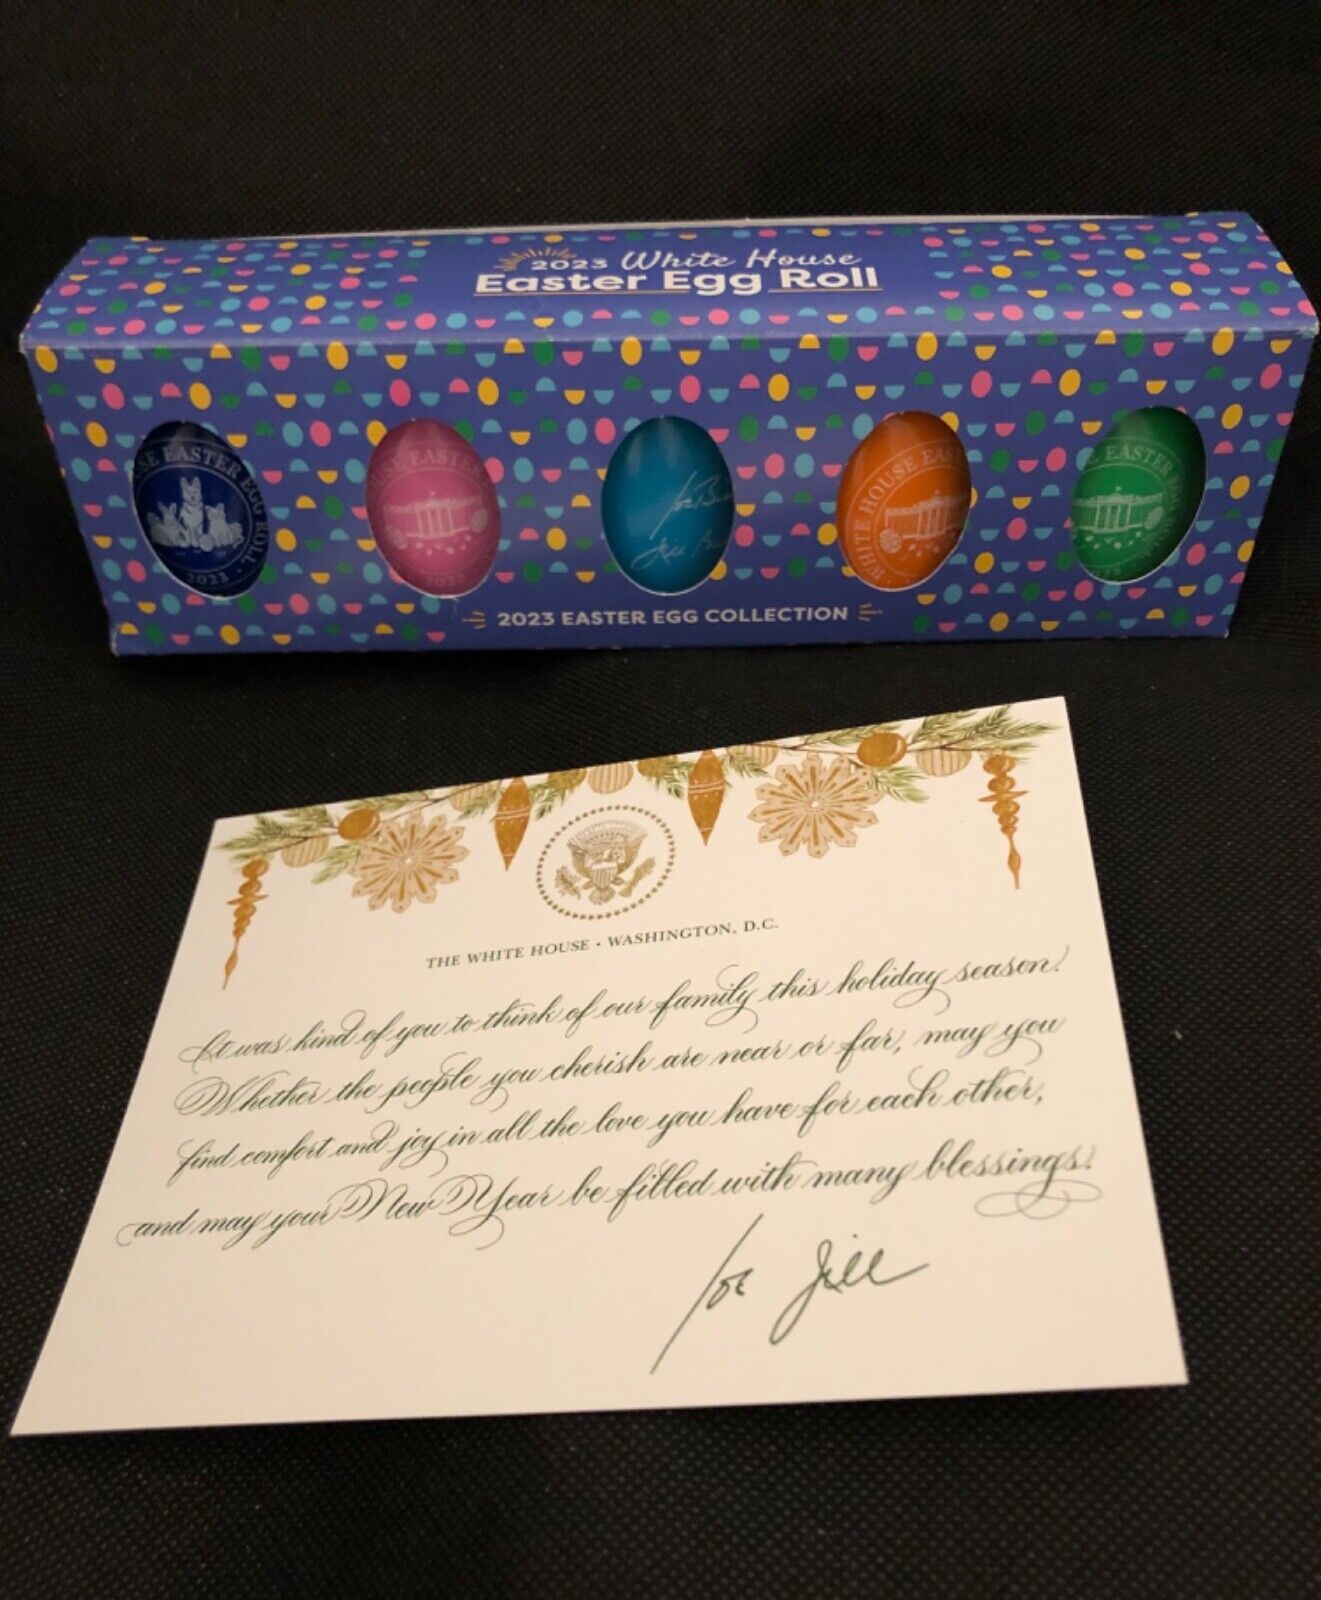 2023 White House
Easter Egg Roll
SE EASTER EGG ROLL ·
2023
SE EASTE
2023
Joe Bi
Jill B
WHITE HOUSE EAS
E EASTER
2023 EASTER EGG COLLECTION
THE WHITE HOUSE • WASHINGTON, D.C.
It was kind of you to think of our family this holiday season.
Whether the people you cherish are near or far, may you
find comfort and joy in all the love you have for each other,
and may your New Year be filled with many blessings.
Joe Jill